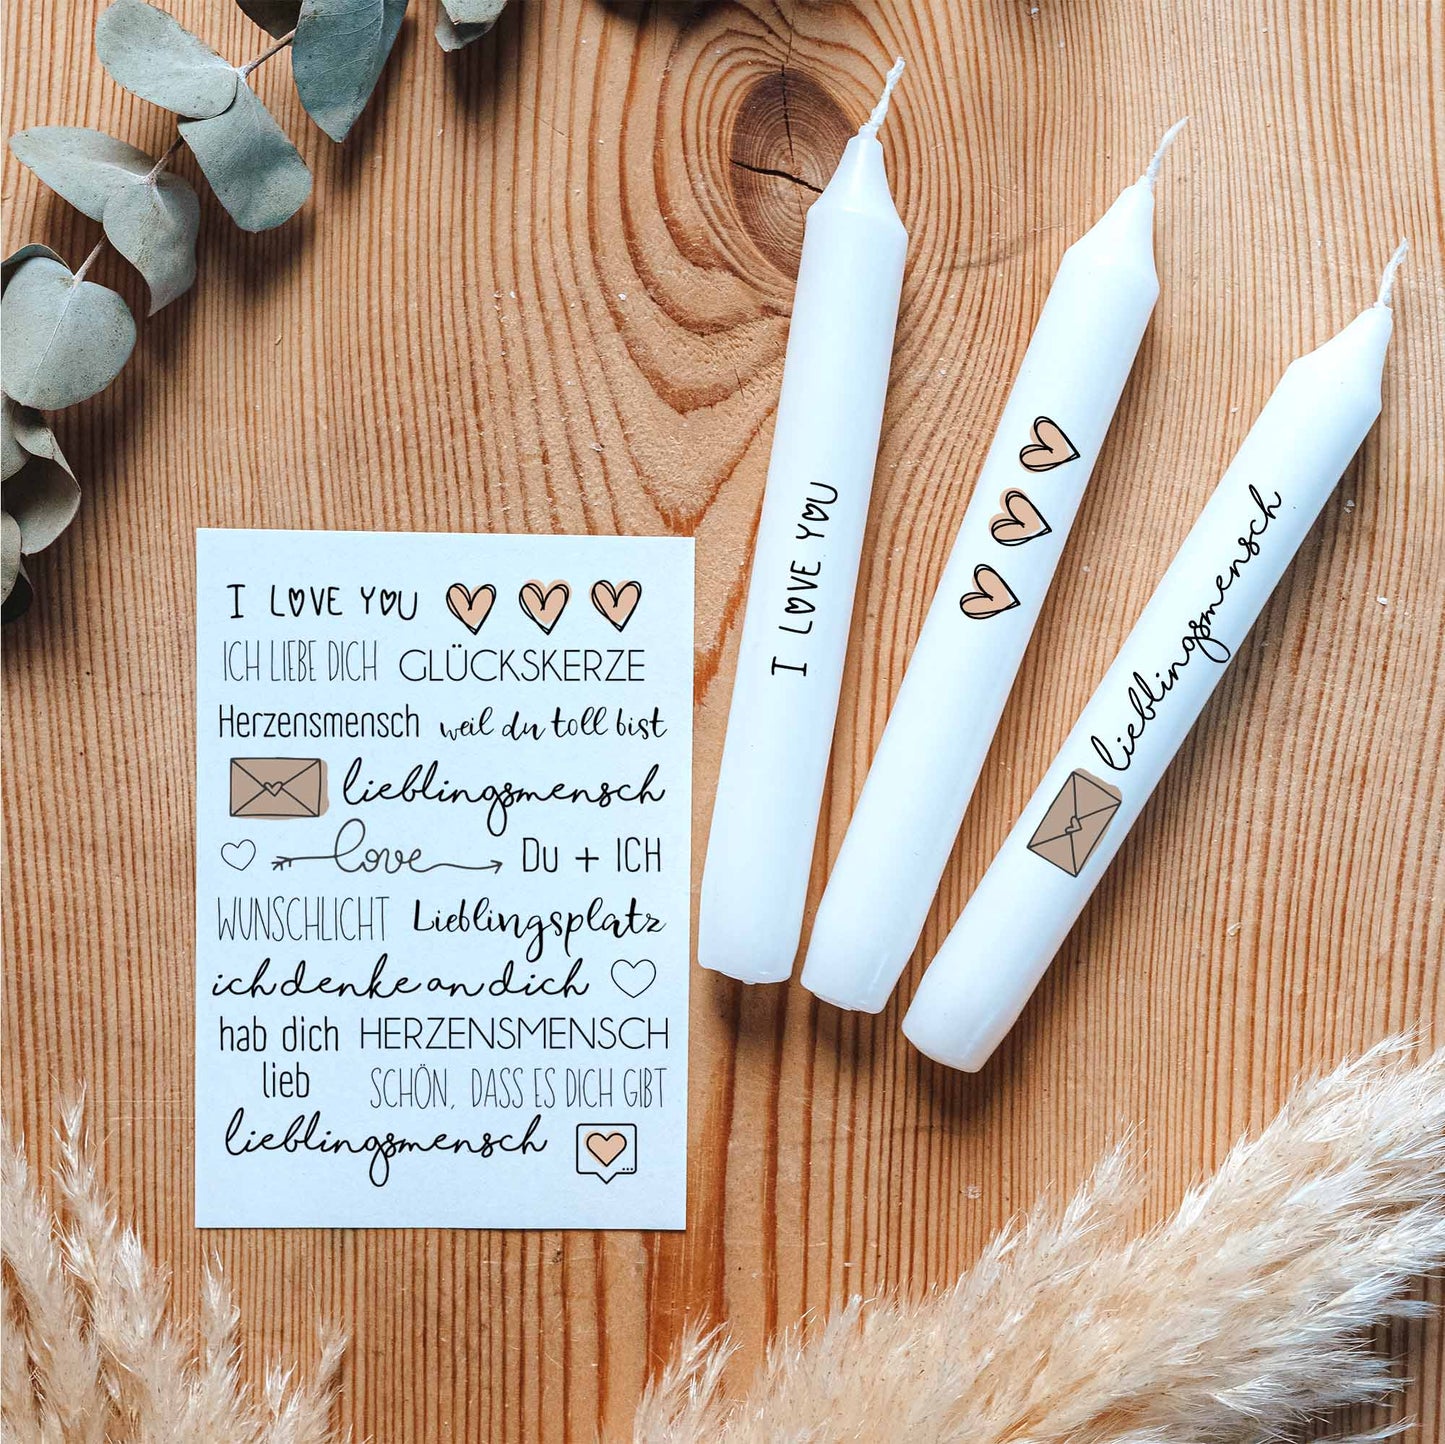 I LOVE YOU
ICH LIEBE DICH GLÜCKSKERZE
Herzensmensch weil du toll bist
lieblingsmensch
love Du + ICH
WUNSCHLICHT Lieblingsplatz
ich denke an dich
hab dich HERZENSMENSCH
lieb SCHÖN, DASS ES DICH GIBT
lieblingsmensch
I LOVE YOU
lieblingsmensch